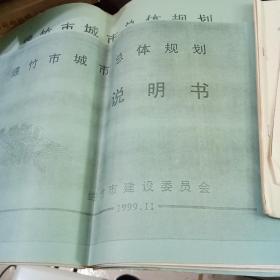 绵竹市城市总体规划
绵竹市城市总体规划
说明书
绵竹市建设委员会
1999.11